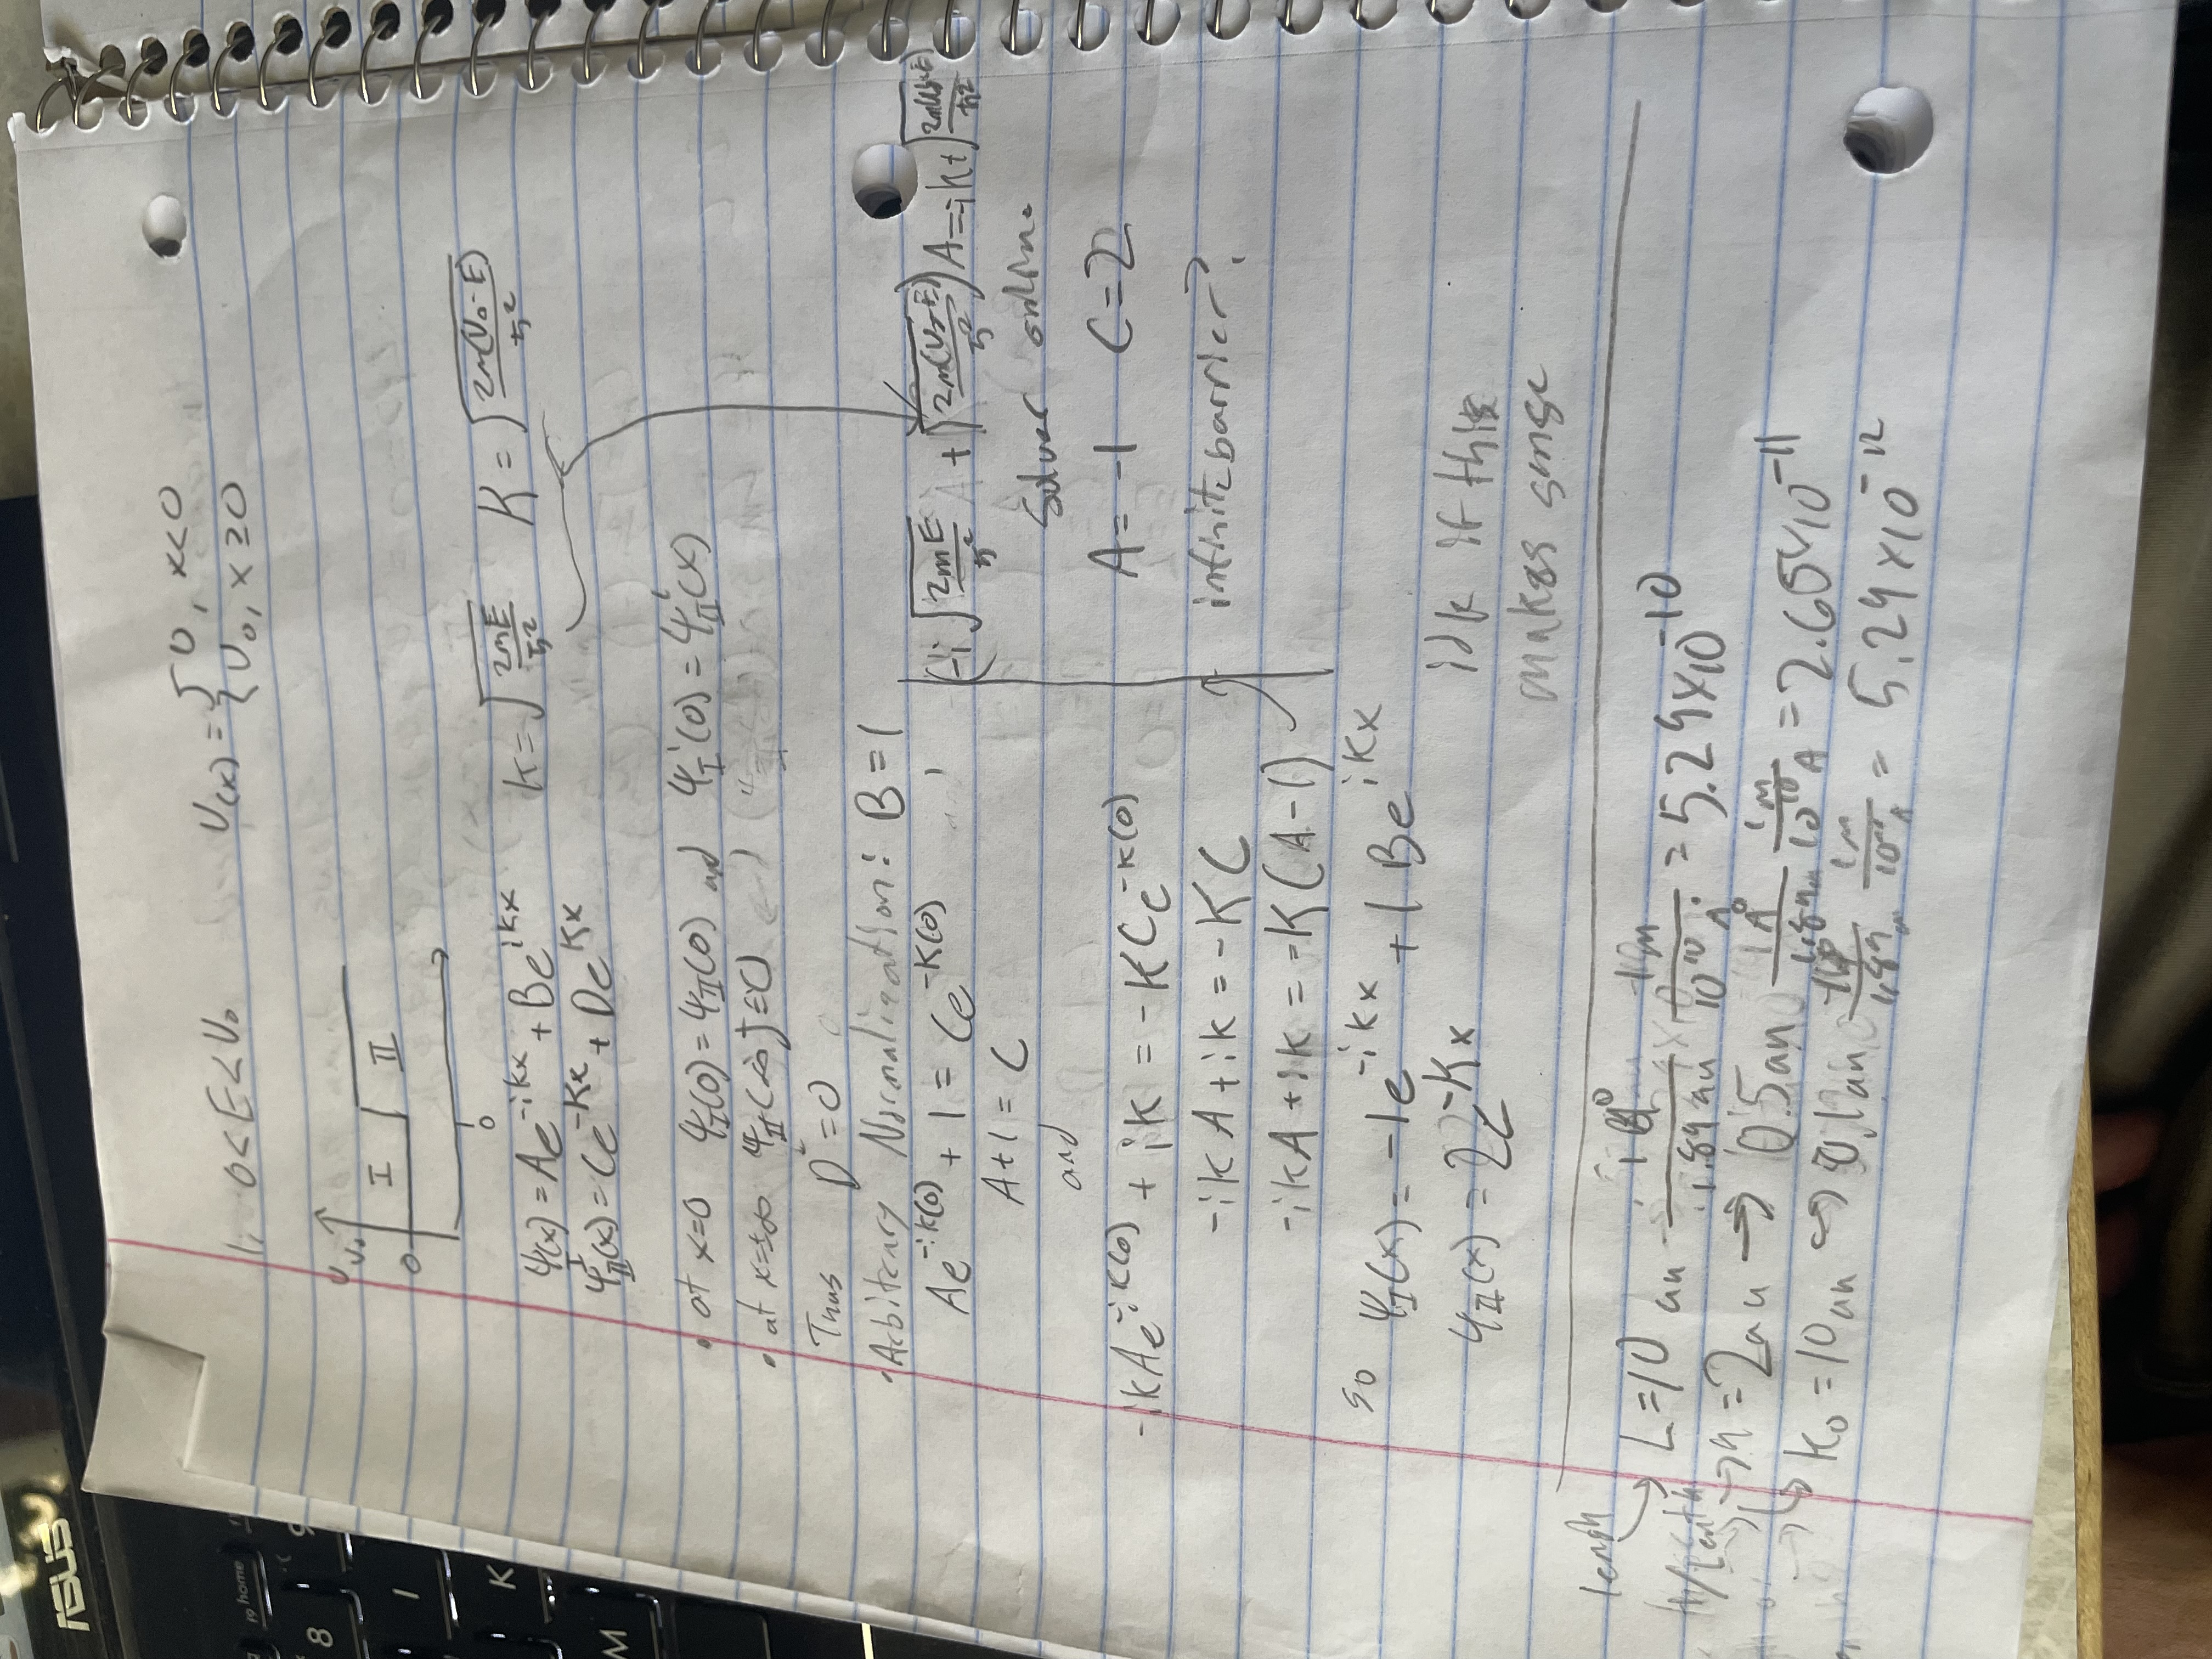 ASUS
f9 home
8
K
M
1. 0<E<U₀ U(x) = { 0, x<0
{ U₀, x≥0
U
U₀
I II
0
0
Ψ_I(x) = Ae^{-ikx} + Be^{ikx} k = √(2mE/ħ²) K = √(2m(U₀-E)/ħ²)
Ψ_II(x) = Ce^{-Kx} + De^{Kx}
• at x=0 Ψ_I(0) = Ψ_II(0) and Ψ_I'(0) = Ψ_II'(x)
• at x=±∞ Ψ_II(∞) = 0
Thus D = 0
• Arbitrary Normalization: B = 1
Ae^{-ik(0)} + 1 = Ce^{-K(0)}
A+1 = C
and
-ikAe^{-ik(0)} + ik = -KCe^{-K(0)}
-ikA + ik = -KC
-ikA + ik = -K(A-1)
(-i√(2mE/ħ²) + √(2m(U₀-E)/ħ²))A = -ik + √(2m(U₀-E)/ħ²)
Solver online
A = -1 C = 2
infinite barrier?
so Ψ_I(x) = -1e^{-ikx} + 1Be^{ikx}
Ψ_II(x) = 2e^{-Kx}
idk if this
makes sense
length
L = 10 au 1Å/1.89 au 1m/10^{10} Å = 5.29×10^{-10}
a = 2au → 0.5au 1Å/1.89au 1m/10^{10} Å = 2.65×10^{-11}
k₀ = 10au → 0.1au 1Å/1.89au 1m/10^{10} Å = 5.29×10^{-12}